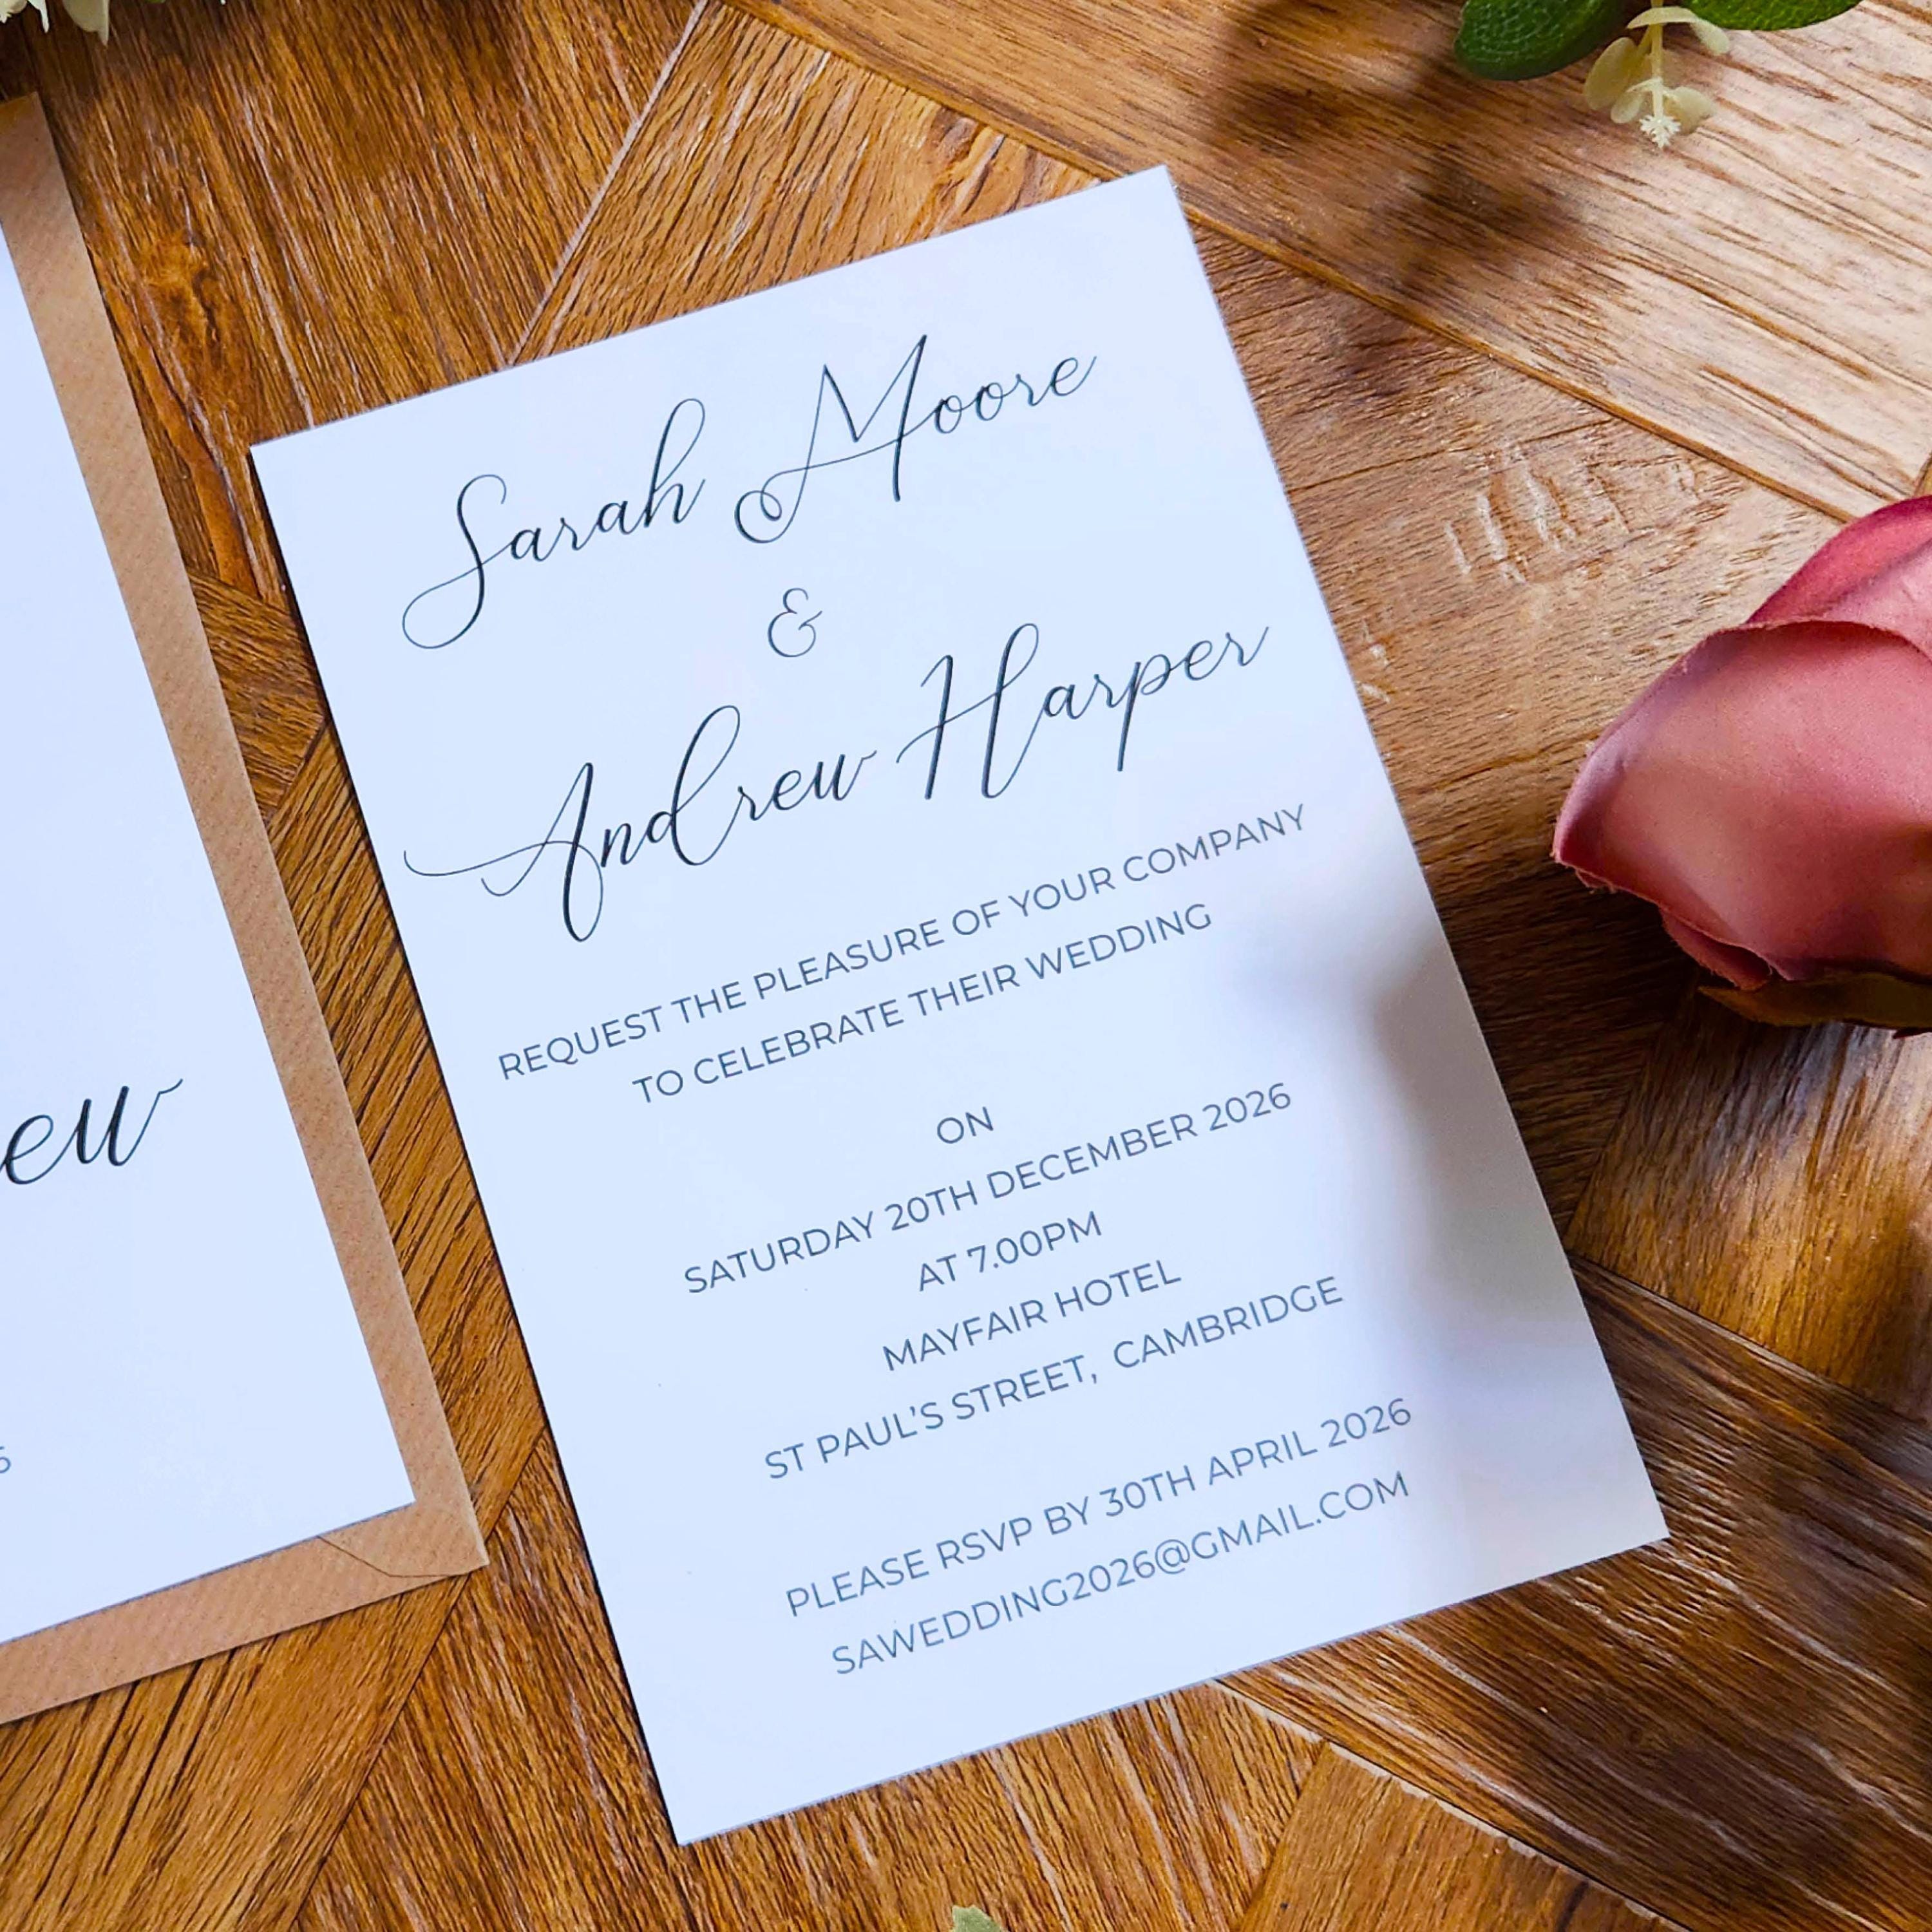 Sarah Moore
&
Andrew Harper
REQUEST THE PLEASURE OF YOUR COMPANY
TO CELEBRATE THEIR WEDDING
ON
SATURDAY 20TH DECEMBER 2026
AT 7.00PM
MAYFAIR HOTEL
ST PAUL'S STREET, CAMBRIDGE
PLEASE RSVP BY 30TH APRIL 2026
SAWEDDING2026@GMAIL.COM